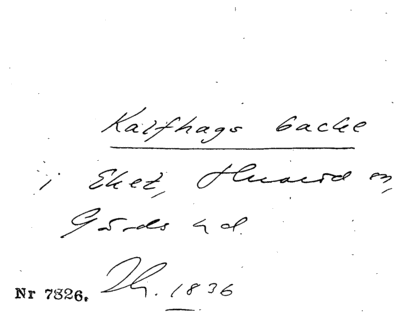 Kalfhags backe
i Eket, Hunared sn,
Gärds hd.
Nr 7826. Th. 1836